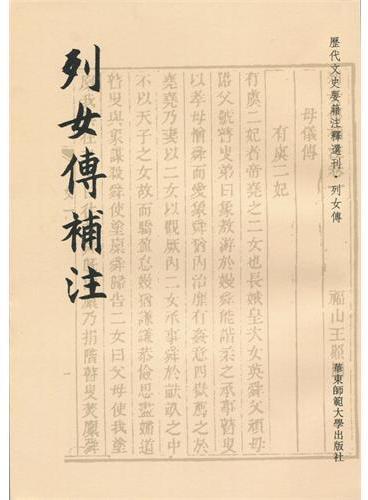 列女傳補注
歷代文史要籍注釋選刊·列女傳
華東師範大學出版社
母儀傳
有虞二妃
福山王照
有虞二妃者帝堯之二女也長娥皇次女英舜父頑母
嚚父號瞽叟弟曰象敖游於嫚舜能諧柔之承事瞽叟
以孝母憎舜而愛象舜猶內治靡有姦意四嶽薦之於
堯堯乃妻以二女以觀厥內二女承事舜於畎畝之中
不以天子之女故而驕盈怠嫚猶謙謙恭儉思盡婦道
瞽叟與象謀殺舜使塗廩舜歸告二女曰父母使我塗
廩乃捐階瞽叟焚廩舜